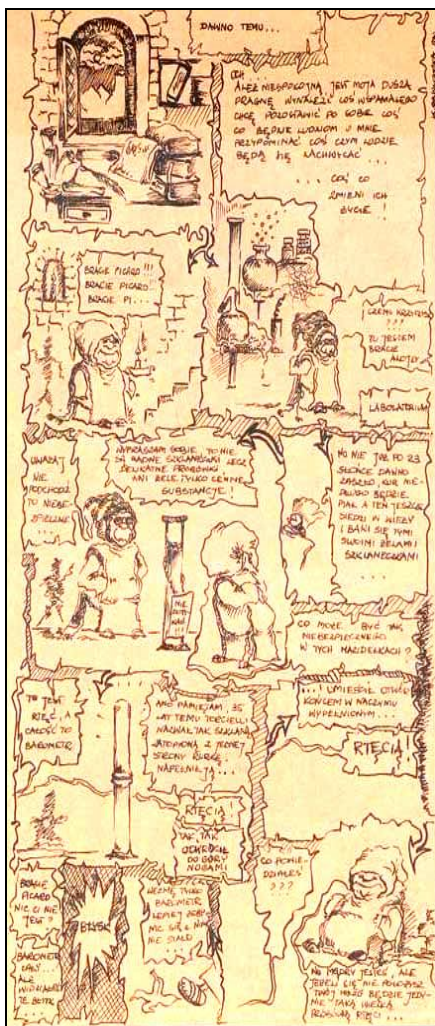 DAWNO TEMU...
ACH...
ALEŻ NIESPOKOJNA JEST MOJA DUSZA
PRAGNĘ WYNALEŹĆ COŚ WSPANIAŁEGO
CHCĘ POZOSTAWIĆ PO SOBIE COŚ
CO BĘDZIE LUDZIOM O MNIE
PRZYPOMINAĆ COŚ CZYM LUDZIE
BĘDĄ SIĘ ZACHWYCAĆ
...
... COŚ CO
ZMIENI ICH
BYCIE!
BRACIE PICARD!!!
BRACIE PICARD!
BRACIE PI...
CZEMU KRZYCZYSZ
???
TU JESTEM
BRACIE
ALOJZY
LABOLATORIUM
UWAŻAJ
NIE
PODCHODZ
TO NIEBEZ-
PIECZNE
...
WYPRASZAM SOBIE TO NIE
SĄ ŻADNE SZKLANECZKI LECZ
DELIKATNE PROBÓWKI
ANI ŻELE TYLKO CENNE
SUBSTANCJE!
NO NIE JUŻ PO 23
SŁOŃCE DAWNO
ZASZŁO, KUR NIE-
DŁUGO BĘDZIE
PIAŁ A TEN JESZCZE
SIEDZI W WIEŻY
I BAWI SIĘ TYMI
SWOIMI ŻELAMI
SZKLANECZKAMI
...
NIE
DOTY
KAĆ
!!!
CO MOŻE BYĆ TAK
NIEBEZPIECZNEGO
W TYCH MAZIDEŁKACH?
TO JEST
RTĘĆ, A
CAŁOŚĆ TO
BAROMETR
ANO PAMIĘTAM, 35
LAT TEMU TORCIELLI
NAZWAŁ TAK SZKLANĄ
ZATOPIONĄ Z JEDNEJ
STRONY RURKĘ
NAPEŁNIŁ JĄ...
RTĘCIĄ!
TAK, TAK
ODWRÓCIŁ
DO GÓRY
NOGAMI
...I UMIEŚCIŁ OTWARTYM
KOŃCEM W NACZYNIU
WYPEŁNIONYM...
RTĘCIĄ!
BRACIE
PICARD
NIC CI NIE
JEST?
BAROMETR
CAŁY...
ALE
BŁYSK
WEZMĘ TYLKO
BAROMETR
LEPIEJ ŻEBY
NIC SIĘ Z NIM
NIE STAŁO
CO POWIE-
DZIAŁEŚ
???
NO MĄDRY JESTEŚ, ALE
JEŻELI SIĘ NIE POŁOŻYSZ
TWÓJ MÓZG BĘDZIE JEDY-
NIE TAKĄ WIELKĄ
PROBÓWKĄ RTĘCI...